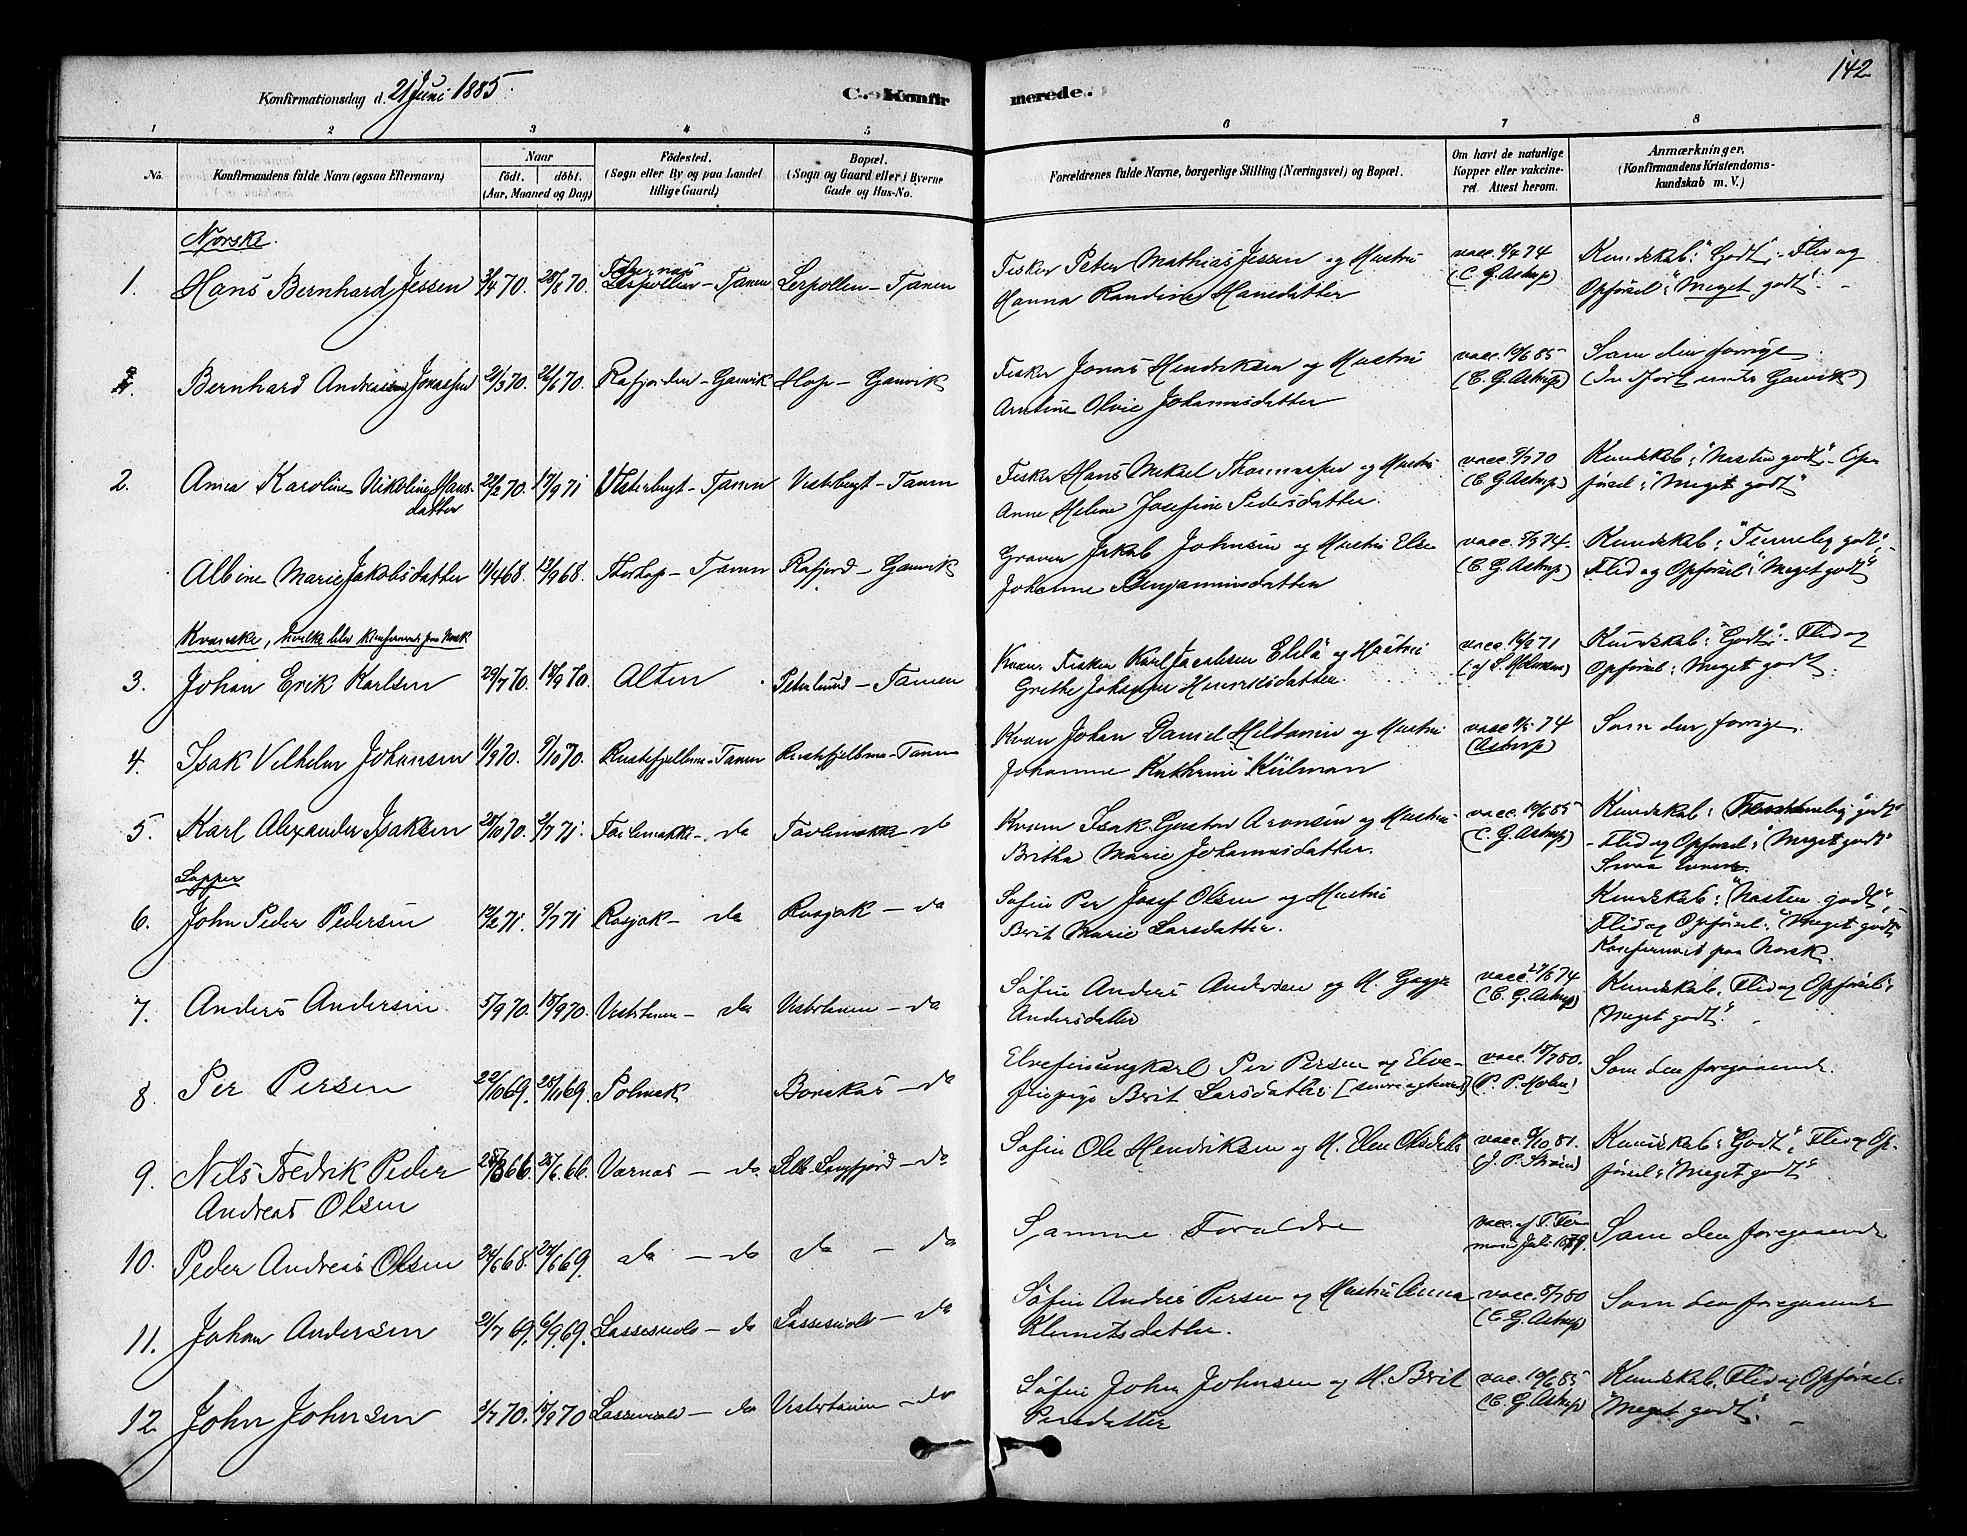 142
Konfirmationsdag d. 21 Juni 1885.
C. Konfirmerede.
1 2 3 4 5 6 7 8
No.
Konfirmandens fulde Navn (ogsaa Efternavn)
Naar
födt. döbt.
(Aar, Maaned og Dag)
Födested.
(Sogn eller By og paa Landet
tillige Gaard)
Bopæl.
(Sogn og Gaard eller i Byerne
Gade og Hus-No.
Forældrenes fulde Navne, borgerlige Stilling (Næringsvei) og Bopæl.
Om havt de naturlige
Kopper eller vakcine-
ret. Attest herom.
Anmærkninger.
(Konfirmandens Kristendoms-
kundskab m. V.)
Norske.
1. Hans Bernhard Jessen 3/4 70. 28/8 70. Lerpollen - Tanen Lerpollen - Tanen Fisker Peter Mathias Jessen og Hustru vacc. 8/7 74 Kundskab: "Godt", Flid og
Hanna Randine Hansdatter (C. G. Astrup) Opförsel: "Meget godt".
Bernhard Andreas Jonassen 2/5 70. 26/6 70. Rafjorden - Gamvik Hop - Gamvik Fisker Jonas Hendriksen og Hustru vacc. 19/6 85 Som den forrige.
Arntine Olvie Johannesdatter (C. G. Astrup) (Indfört under Gamvik)
2. Anna Karoline Nikoline Hans-
datter 22/2 70. 17/9 71 Vesterbugt - Tanen Vesterbugt - Tanen Fisker Hans Mikael Thomassen og Hustru vacc. 9/7 70 Kundskab: "Næsten godt", Op-
Anne Helene Josefine Pedersdatter. (C. G. Astrup) försel: "Meget godt"
Albine Marie Jakobsdatter 11/4 68. 13/9 68. Torhop - Tanen Rafjord - Gamvik Graver Jakob Johnsen og Hustru Else vacc. 9/7 74. Kundskab: "Temmelig godt",
Johanne Benjaminsdatter (C. G. Astrup) Flid og Opförsel: "Meget godt"
Kvænske, hvilke blev konfirmeret paa Norsk
3. Johan Erik Karlsen 29/7 70. 14/9 70. Alten Peterlund - Tanen Kvæn. Fisker Karl Jacobsen Elilä og Hustru vacc. 16/9 71 Kundskab: "Godt", Flid og
Grethe Johanne Henriksdatter. Opförsel: Meget godt.
4. Isak Vilhelm Johansen 11/9 70. 9/10 70. Rustefjelbma - Tanen Rustefjelbma - Tanen Kvæn Johan Daniel Hiltamin og Hustru 74 Som den forrige.
Johanne Kathrine Külman (Astrup)
5. Karl Alexander Isaksen 28/10 70. 2/7 71. - do - do Kvæn Isak Gustav Aronsen og Hustru vacc. 19/6 85 Kundskab: Temmelig godt
Britha Marie Johannesdatter. (C. G. Astrup) - Flid og Opförsel: "Meget godt"
Smaa Evner.
Lapper
6. John Peder Pedersen 12/2 71. 9/7 71 Rosjok - do Rosjok - do Söfin Per Josef Olsen og Hustru Kundskab: "Næsten godt",
Brit Marie Larsdatter. Flid og Opförsel: "Meget godt"
Konfirmeret paa Norsk.
7. Anders Andersen 5/9 70. 18/9 70. Vestertanen - do Vestertanen - do Söfin Anders Andersen og H. Gagga vacc. 27/8 74 Kundskab, Flid og Opförsel:
Andersdatter (C. G. Astrup) "Meget godt".
8. Per Persen 22/10 69. 28/11 69. Polmak Bonakas - do Elvefinungkarl Per Persen og Elve- vacc. 18/7 80. Som den foregaaende.
finpige Brit Larsdatter (P. P. Holm)
9. Nils Fredrik Peder
Andreas Olsen 66. 24/6 66. Varnæs - do Langfjord - do Söfin Ole Hendriksen og H. Elen Olsdatter vacc. 9/10 81. Kundskab: "Godt", Flid og Op-
(J. P. Ström) försel: "Meget godt".
10. Peder Andreas Olsen 24/6 68. 24/6 69. do - do do - do Samme Forældre Som den foregaaende
11. Johan Andersen 2/7 69. 6/9 69. - do - do Söfin Anders Persen og Hustru Anna vacc. 8/7 80 Som den foregaaende
Klemetsdatter. (C. G. Astrup)
12. John Johnsen 3/7 70. 18/9 70 - do Vestertanen - do Söfin John Johnsen og H. Brit vacc. 19/6 85 Kundskab, Flid og Opförsel:
Persdatter (C. G. Astrup) "Meget godt".